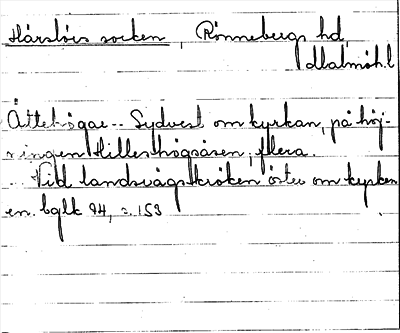 Härslövs socken, Rönnebergs hd,
Malmöh.l
Ättehögar -- Sydvest om kyrkan, på höj-
ningen Hilleshögsåsen, flera.
.. Vid landsvägskröken öster om kyrkan
en. bglk 94, s. 153